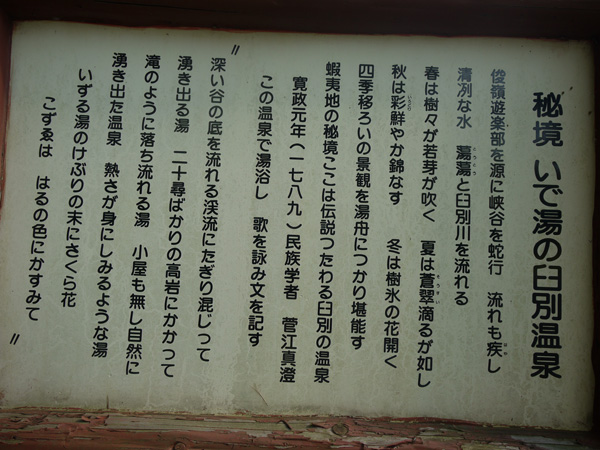 秘境 いで湯の臼別温泉
俊嶺遊楽部を源に峡谷を蛇行 流れも疾し
清冽な水 蕩蕩と臼別川を流れる
春は樹々が若芽が吹く 夏は蒼翠滴るが如し
秋は彩鮮やか錦なす 冬は樹氷の花開く
四季移ろいの景観を湯舟につかり堪能す
蝦夷地の秘境ここは伝説つたわる臼別の温泉
寛政元年(一七八九)民族学者 菅江真澄
この温泉で湯浴し 歌を詠み文を記す
〃
深い谷の底を流れる渓流にたぎり混じって
湧き出る湯 二十尋ばかりの高岩にかかって
滝のように落ち流れる湯 小屋も無し自然に
湧き出た温泉 熱さが身にしみるような湯
いずる湯のけぶりの末にさくら花
こずゑは はるの色にかすみて
〃